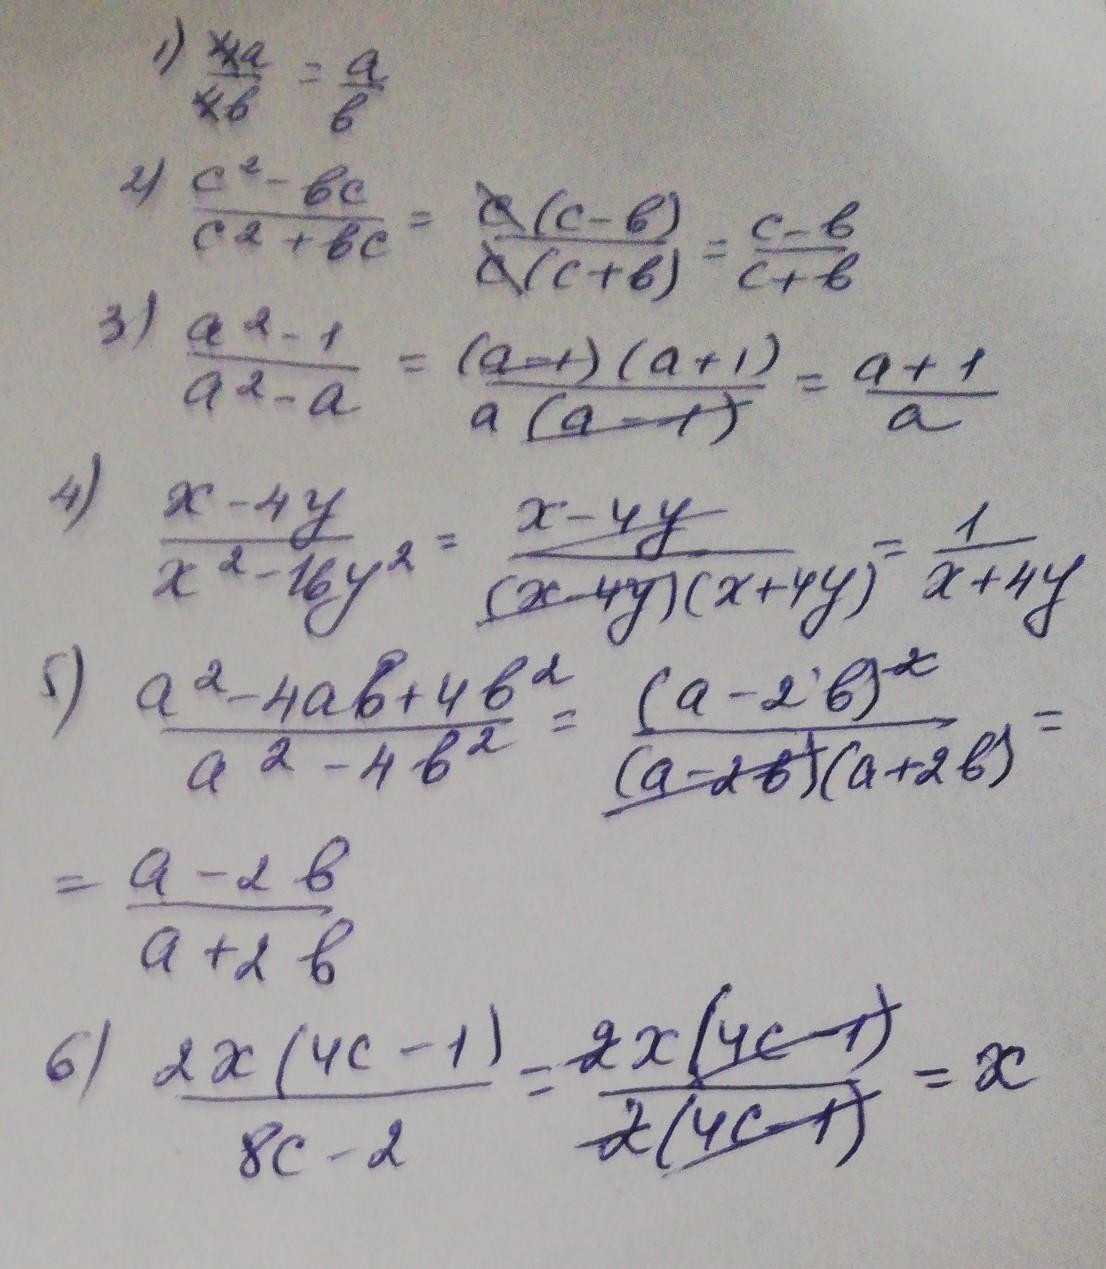 1) 4a/4b = a/b
2) (c² - bc)/(c² + bc) = c(c - b)/c(c + b) = (c - b)/(c + b)
3) (a² - 1)/(a² - a) = (a - 1)(a + 1)/a(a - 1) = (a + 1)/a
4) (x - 4y)/(x² - 16y²) = (x - 4y)/(x - 4y)(x + 4y) = 1/(x + 4y)
5) (a² - 4ab + 4b²)/(a² - 4b²) = (a - 2b)²/(a - 2b)(a + 2b) =
= (a - 2b)/(a + 2b)
6) 2x(4c - 1)/(8c - 2) = 2x(4c - 1)/2(4c - 1) = x